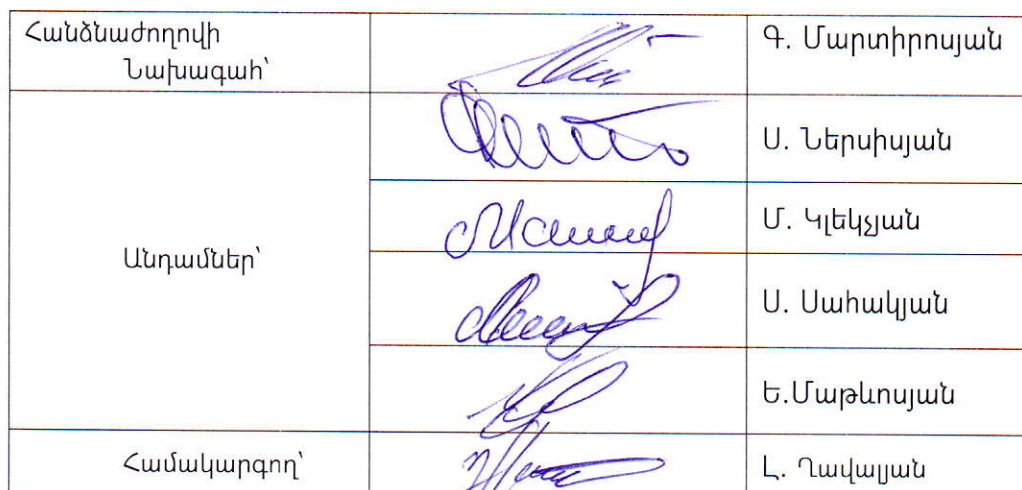 Հանձնաժողովի
Նախագահ՝
Գ. Մարտիրոսյան
Անդամներ՝
Ս. Ներսիսյան
Մ. Կլեկչյան
Ս. Սահակյան
Ե.Մաթևոսյան
Համակարգող՝
Լ. Ղավալյան